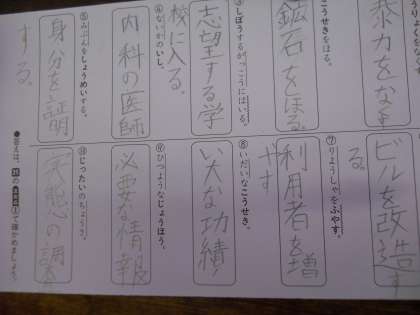 暴力をなく
こうせきをほる。
鉱石をほる。
しぼうするがっこうにはいる。
志望する学
校に入る。
④ないかのいし。
内科の医師
⑤みぶんをしょうめいする。
身分を証明
する。
ビルを改造す
る。
⑦りようしゃをふやす。
利用者を増
やす
⑧いだいなこうせき。
い大な功績
⑨ひつようなじょうほう。
必要な情報
⑩じったいのちょうさ。
実態の調
●答えは、
で確かめましょう。